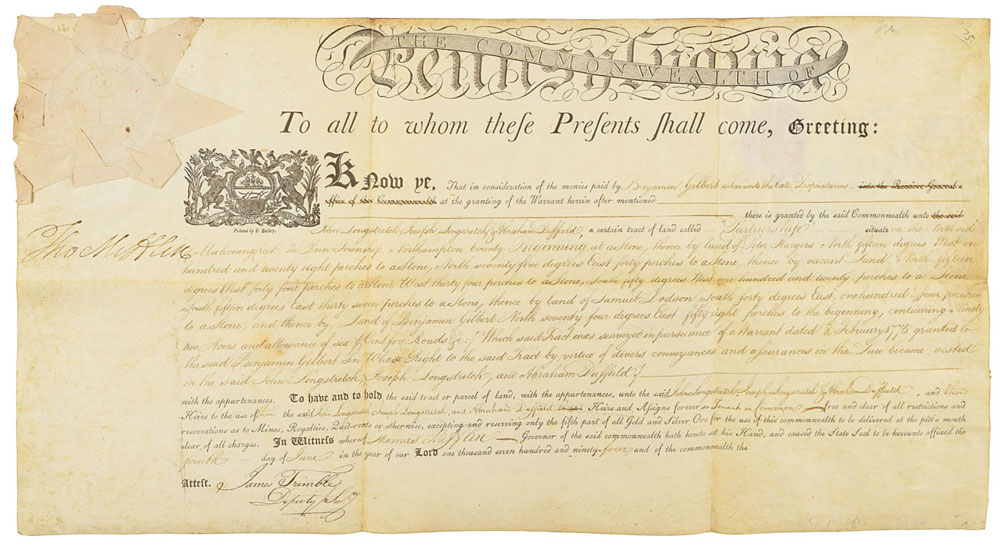 THE COMMONWEALTH OF
Pennsylvania
To all to whom theſe Preſents ſhall come, Greeting:
Know ye, That in consideration of the monies paid by Benjamin Gilbert Jun unto the late Proprietaries into the Receiver General's
office of the Commonwealth at the granting of the Warrant herein after mentioned
there is granted by the said Commonwealth unto the said
Printed by F. Bailey.
John Longstretch Joseph Longstretch & Abraham Duffield, a certain tract of land called situate on the North side
Tho Mifflin
Mahoning Creek in Penn Township Northampton County Beginning at a Stone, thence by land of Peter Hargers North fifteen degrees West one
hundred and twenty eight perches to a Stone, North seventy five degrees East forty perches to a Stone, thence by vacant Land North fifteen
degrees West forty four perches to a Stone West thirty four perches to a Stone, South fifty degrees West one hundred and twenty perches to a Stone
South fifteen degrees East thirty seven perches to a Stone, thence by land of Samuel Dodson South forty degrees East, one hundred & four perches
to a Stone, and thence by Land of Benjamin Gilbert North seventy four degrees East fifty eight perches to the beginning, containing Ninety
two Acres and allowance of six Cent for Roads &c (Which said Tract was surveyed in pursuance of a Warrant dated 8 February 1776 granted to
the said Benjamin Gilbert Jun Whose Right to the said Tract by virtue of divers conveyances and assurances in the Law became vested
in the said John Longstretch, Joseph Longstretch, and Abraham Duffield)
with the appurtenances. To have and to hold the said tract or parcel of land, with the appurtenances, unto the said John Longstretch Joseph Longstretch & Abraham Duffield, and their
Heirs to the use of them the said John Longstretch Joseph Longstretch, and Abraham Duffield their Heirs and Assigns forever as Tenants in common free and clear of all restrictions and
reservations as to Mines, Royalties, Quit-rents or otherwise, excepting and reserving only the fifth part of all Gold and Silver Ore for the use of this commonwealth to be delivered at the pit's mouth
clear, of all charges. In Witness whereof Thomas Mifflin Governor of the said commonwealth hath hereto set his Hand, and caused the State Seal to be hereunto affixed the
fourth day of June in the year of our Lord one thousand seven hundred and ninety-four and of the commonwealth the
Attest. James Trimble
Deputy Secy